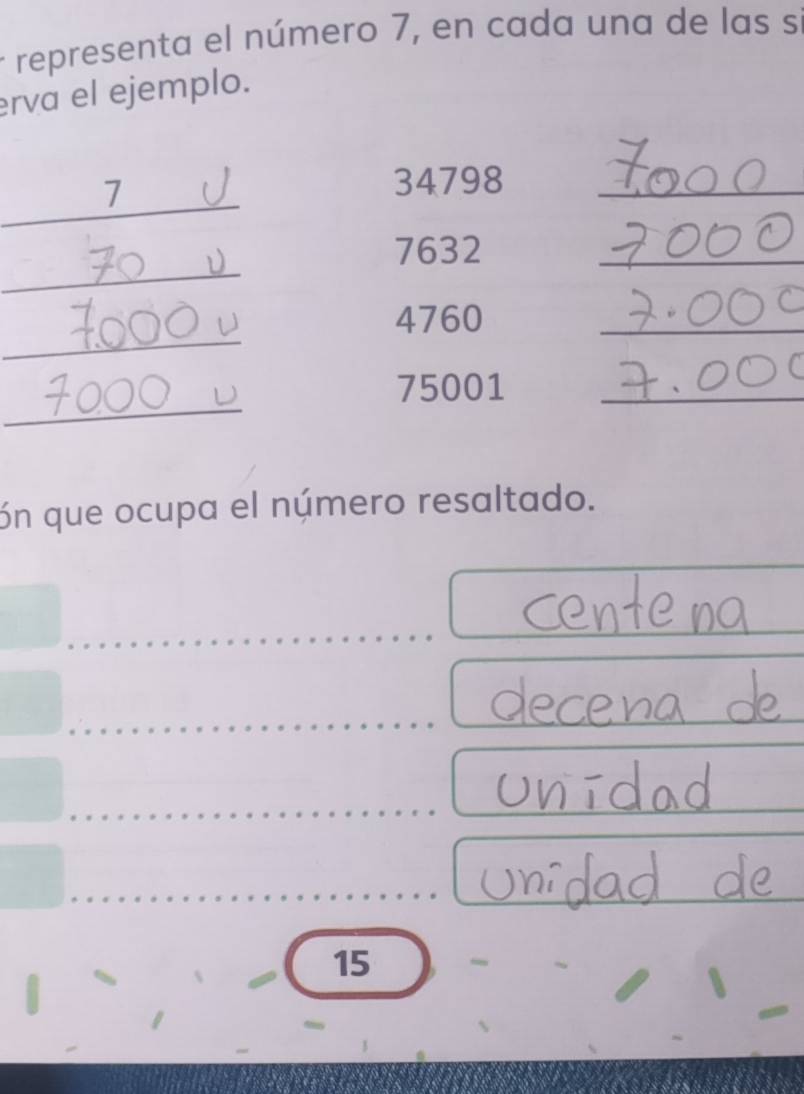 representa el número 7, en cada una de las si
erva el ejemplo.
7 U 34798 7.000
70 U 7632 7000
7.000 U 4760 7.000
7000 U 75001 7.000
ón que ocupa el número resaltado.
centena
decena de
unidad
unidad de
15